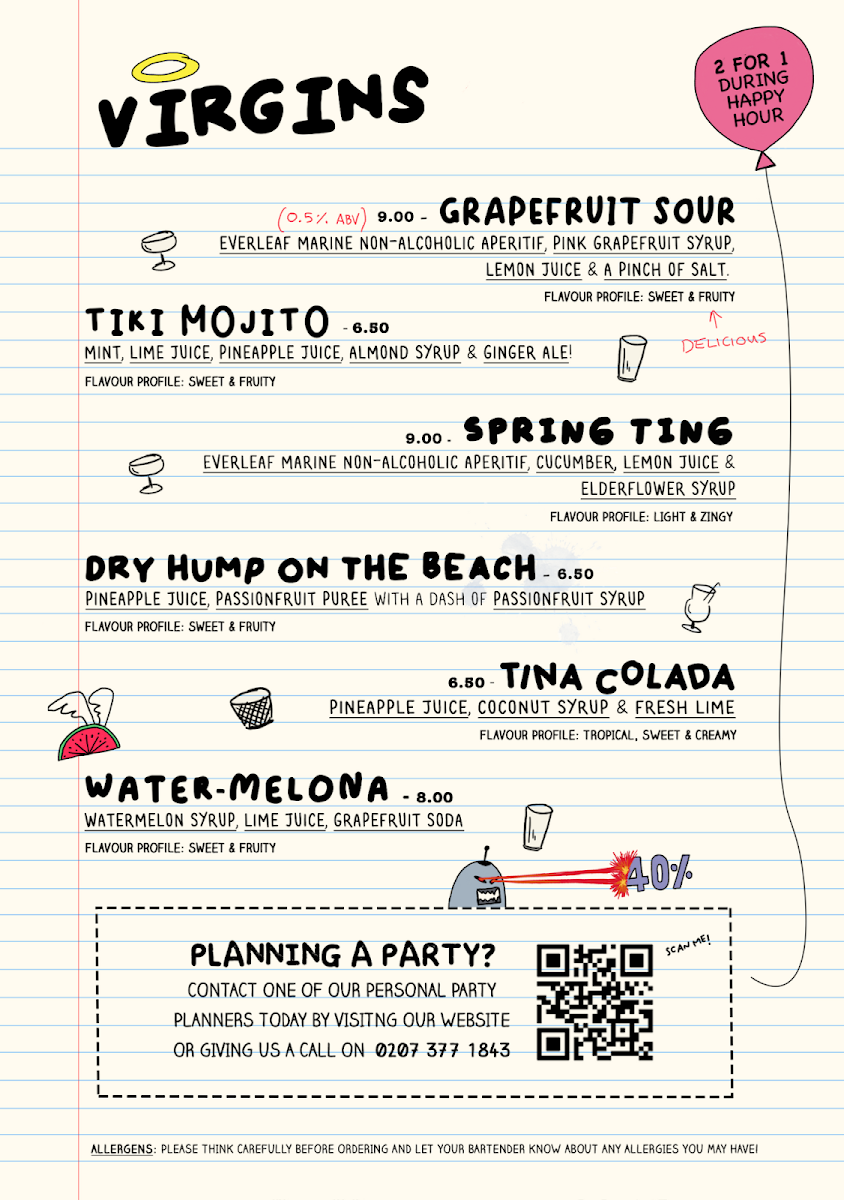 VIRGINS
2 FOR 1
DURING
HAPPY
HOUR
(0.5% ABV) 9.00 - GRAPEFRUIT SOUR
EVERLEAF MARINE NON-ALCOHOLIC APERITIF, PINK GRAPEFRUIT SYRUP,
LEMON JUICE & A PINCH OF SALT.
FLAVOUR PROFILE: SWEET & FRUITY
DELICIOUS
TIKI MOJITO - 6.50
MINT, LIME JUICE, PINEAPPLE JUICE, ALMOND SYRUP & GINGER ALE!
FLAVOUR PROFILE: SWEET & FRUITY
9.00 - SPRING TING
EVERLEAF MARINE NON-ALCOHOLIC APERITIF, CUCUMBER, LEMON JUICE &
ELDERFLOWER SYRUP
FLAVOUR PROFILE: LIGHT & ZINGY
DRY HUMP ON THE BEACH - 6.50
PINEAPPLE JUICE, PASSIONFRUIT PUREE WITH A DASH OF PASSIONFRUIT SYRUP
FLAVOUR PROFILE: SWEET & FRUITY
6.50 - TINA COLADA
PINEAPPLE JUICE, COCONUT SYRUP & FRESH LIME
FLAVOUR PROFILE: TROPICAL, SWEET & CREAMY
WATER-MELONA - 8.00
WATERMELON SYRUP, LIME JUICE, GRAPEFRUIT SODA
FLAVOUR PROFILE: SWEET & FRUITY
40%
PLANNING A PARTY?
CONTACT ONE OF OUR PERSONAL PARTY
PLANNERS TODAY BY VISITNG OUR WEBSITE
OR GIVING US A CALL ON 0207 377 1843
SCAN ME!
ALLERGENS: PLEASE THINK CAREFULLY BEFORE ORDERING AND LET YOUR BARTENDER KNOW ABOUT ANY ALLERGIES YOU MAY HAVE!